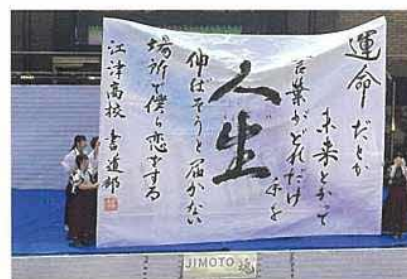 運命だとか
未来とかって
言葉がどれだけ
手を
人生
伸ばそうと届かない
場所で僕ら恋をする
江津高校 書道部
JIMOTO 魂